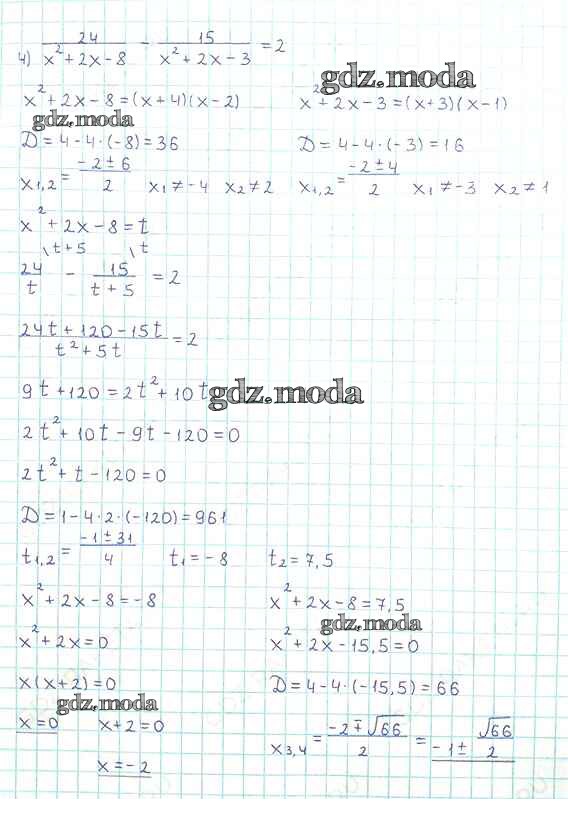 4) 24/(x²+2x-8) - 15/(x²+2x-3) = 2
gdz.moda
x²+2x-8=(x+4)(x-2) x²+2x-3=(x+3)(x-1)
gdz.moda
D=4-4·(-8)=36 D=4-4·(-3)=16
x1,2 = (-2±6)/2 x1≠-4 x2≠2 x1,2 = (-2±4)/2 x1≠-3 x2≠1
x²+2x-8=t
\t+5 \t
24/t - 15/(t+5) = 2
(24t+120-15t)/(t²+5t) = 2
9t+120=2t²+10t
gdz.moda
2t²+10t-9t-120=0
2t²+t-120=0
D=1-4·2·(-120)=961
t1,2 = (-1±31)/4 t1=-8 t2=7,5
x²+2x-8=-8 x²+2x-8=7,5
gdz.moda
x²+2x=0 x²+2x-15,5=0
x(x+2)=0 D=4-4·(-15,5)=66
gdz.moda
x=0 x+2=0 x3,4 = (-2∓√66)/2 = -1± √66/2
x=-2